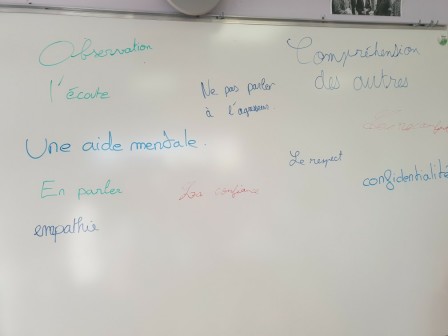 Observation
Compréhension
des autres
l'écoute
Ne pas parler
à l'agresseur
Une aide mentale.
Le respect
En parler
La confiance
confidentialité
empathie